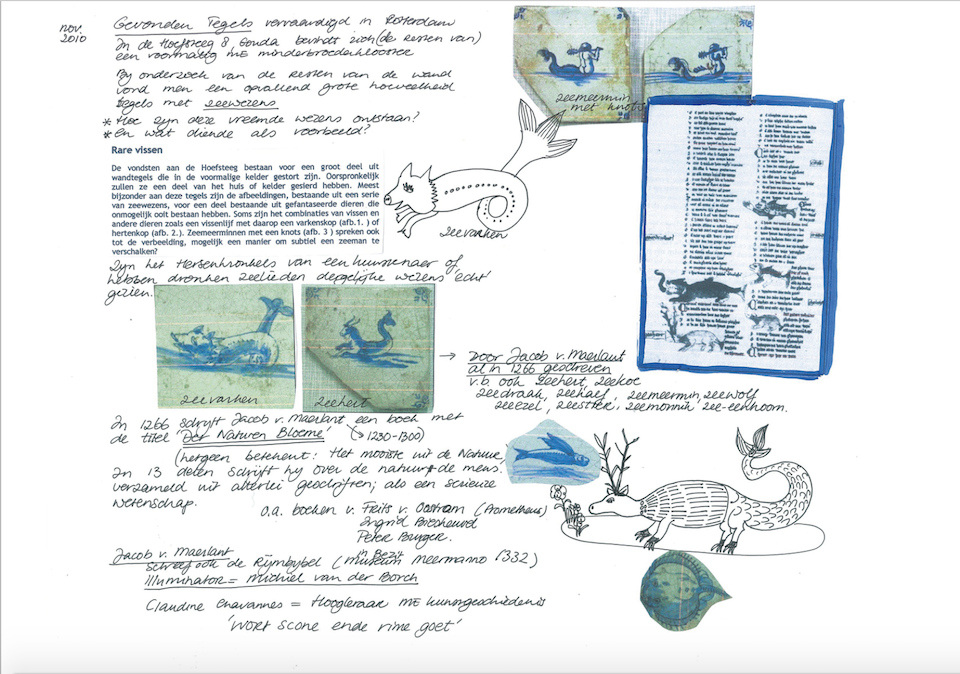 nov. 2010
Gevonden Tegels vervaardigd in Rotterdam
In de Hoefsteeg 8, Gouda bevindt zich (de resten van)
een voormalig ME minderbroederklooster
Bij onderzoek van de resten van de wand
vond men een opvallend grote hoeveelheid
tegels met zeewezens
* Hoe zijn deze vreemde wezens ontstaan?
* En wat diende als voorbeeld?
zeemeermin
met knots
Rare vissen
De vondsten aan de Hoefsteeg bestaan voor een groot deel uit
wandtegels die in de voormalige kelder gestort zijn. Oorspronkelijk
zullen ze een deel van het huis of kelder gesierd hebben. Meest
bijzonder aan deze tegels zijn de afbeeldingen, bestaande uit een serie
van zeewezens, voor een deel bestaande uit gefantaseerde dieren die
onmogelijk ooit bestaan hebben. Soms zijn het combinaties van vissen en
andere dieren zoals een vissenlijf met daarop een varkenskop (afb.1. ) of
hertenkop (afb. 2.). Zeemeerminnen met een knots (afb. 3 ) spreken ook
tot de verbeelding, mogelijk een manier om subtiel een zeeman te
verschalken?
zeevarken
Zijn het Hersenkronkels van een kunstenaar of
hebben dronken zeelieden dergelijke wezens 'echt'
gezien.
zeevarken
zeehert
→ Door Jacob v. Maerlant
al in 1266 geschreven
v.b. ook zeehert, zeekoe
zeedraak, zeekalf, zeemeermin, zeewolf
zeeezel, zeestier, zeemonnik, zee-eenhoorn.
In 1266 schrijft Jacob v. Maerlant een boek met
de titel 'Der Naturen Bloeme' (→ 1230-1300)
(hetgeen betekent: Het mooiste uit de Natuur
In 13 delen schrijft hij over de natuur + de mens.
verzameld uit allerlei geschriften; als een serieuze
wetenschap.
o.a. boeken v. Frits v. Oostrom (Prometheus)
Ingrid Biesheuvel
Peter Burger.
Jacob v. Maerlant
in Bezit
schreef ook de Rijmbijbel (museum Meermanno 1332)
Illuminator = Michiel van der Borch
Claudine Chavannes = Hoogleraar ME kunstgeschiedenis
'wort scone ende rime goet'